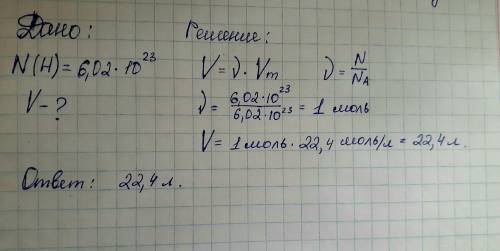 Дано:
N(H) = 6,02 · 10²³
V - ?
Решение:
V = ν · Vₘ ν = N/N_A
ν = 6,02·10²³/6,02·10²³ = 1 моль
V = 1 моль · 22,4 моль/л = 22,4 л.
Ответ: 22,4 л.